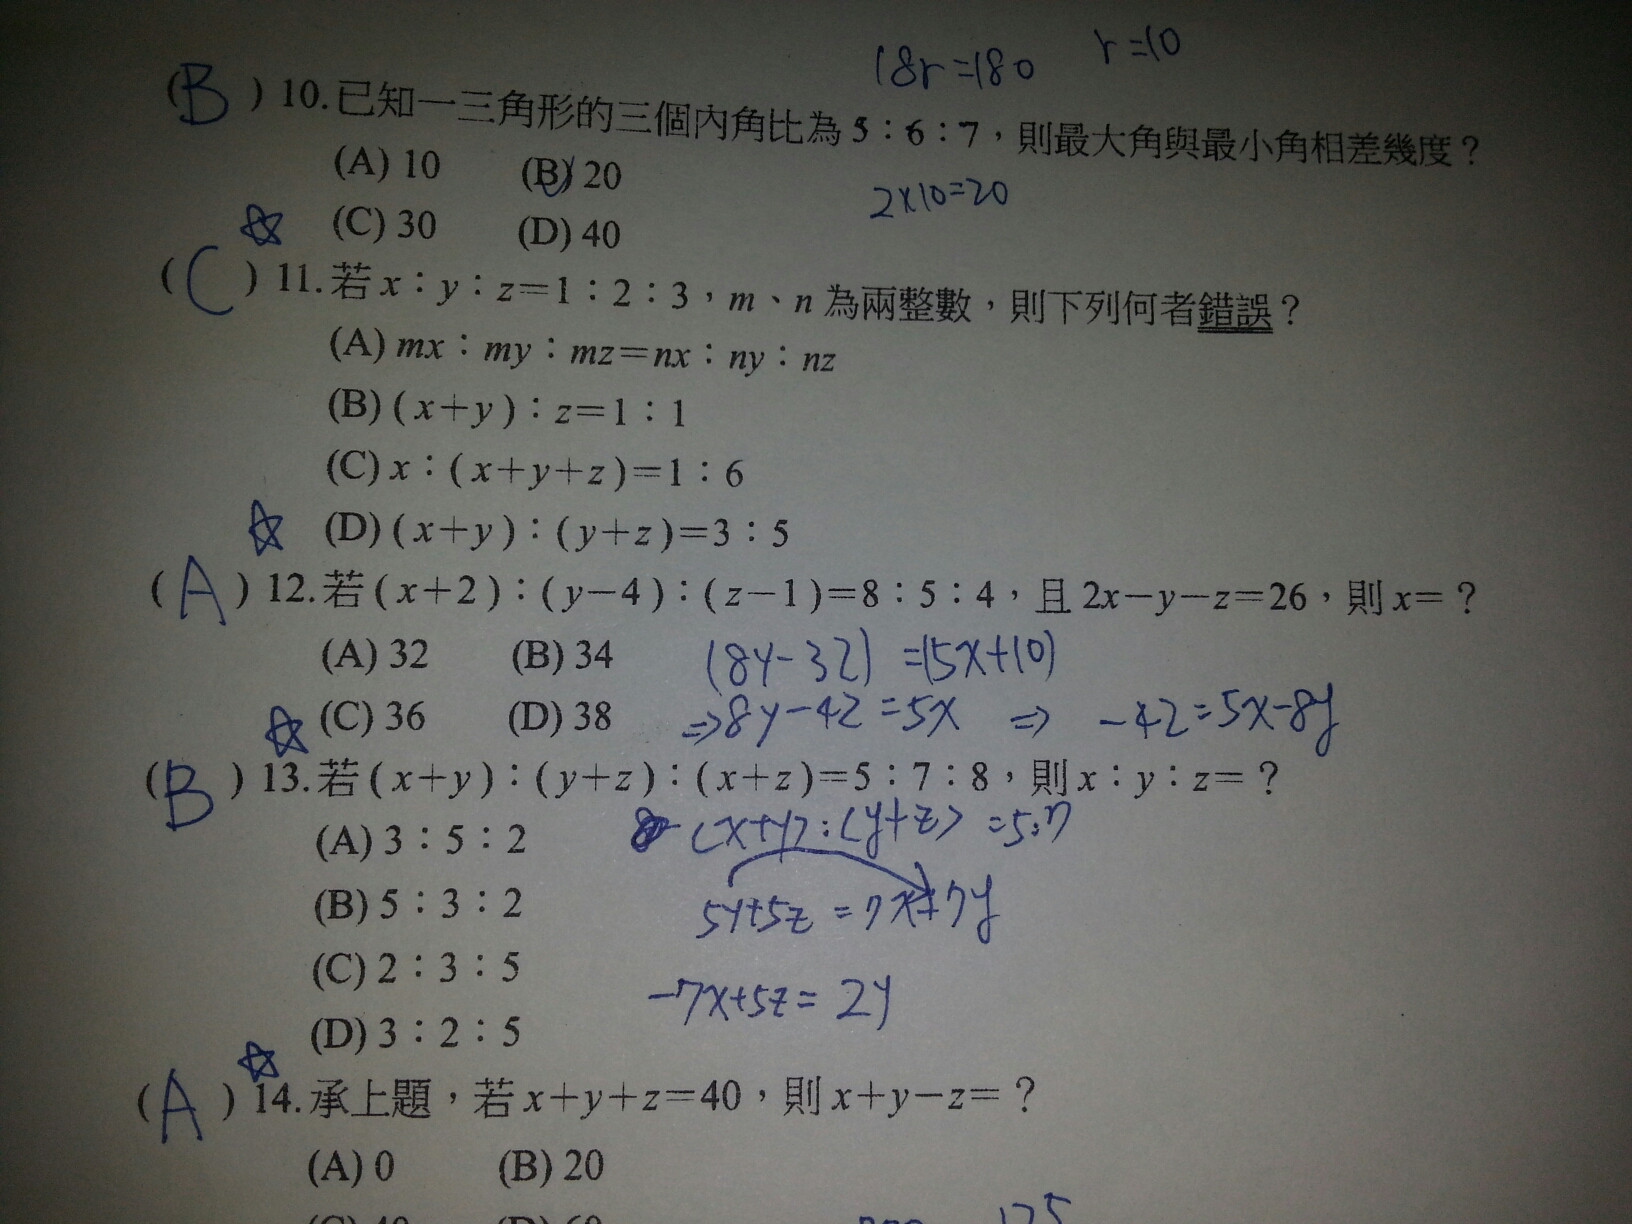 18r=180 r=10
(B) 10.已知一三角形的三個內角比為5：6：7，則最大角與最小角相差幾度？
(A) 10 (B) 20
2×10=20
☆ (C) 30 (D) 40
(C) 11.若x：y：z=1：2：3，m、n為兩整數，則下列何者錯誤？
(A) mx：my：mz=nx：ny：nz
(B) (x+y)：z=1：1
(C) x：(x+y+z)=1：6
☆ (D) (x+y)：(y+z)=3：5
(A) 12.若(x+2)：(y-4)：(z-1)=8：5：4，且2x-y-z=26，則x=？
(A) 32 (B) 34 (8y-32) =(5x+10)
☆ (C) 36 (D) 38 ⇒8y-42=5x ⇒ -42=5x-8y
(B) 13.若(x+y)：(y+z)：(x+z)=5：7：8，則x：y：z=？
(A) 3：5：2 (x+y):(y+z) =5:7
(B) 5：3：2 5y+5z=7x+7y
(C) 2：3：5
-7x+5z=2y
(D) 3：2：5
☆
(A) 14.承上題，若x+y+z=40，則x+y-z=？
(A) 0 (B) 20